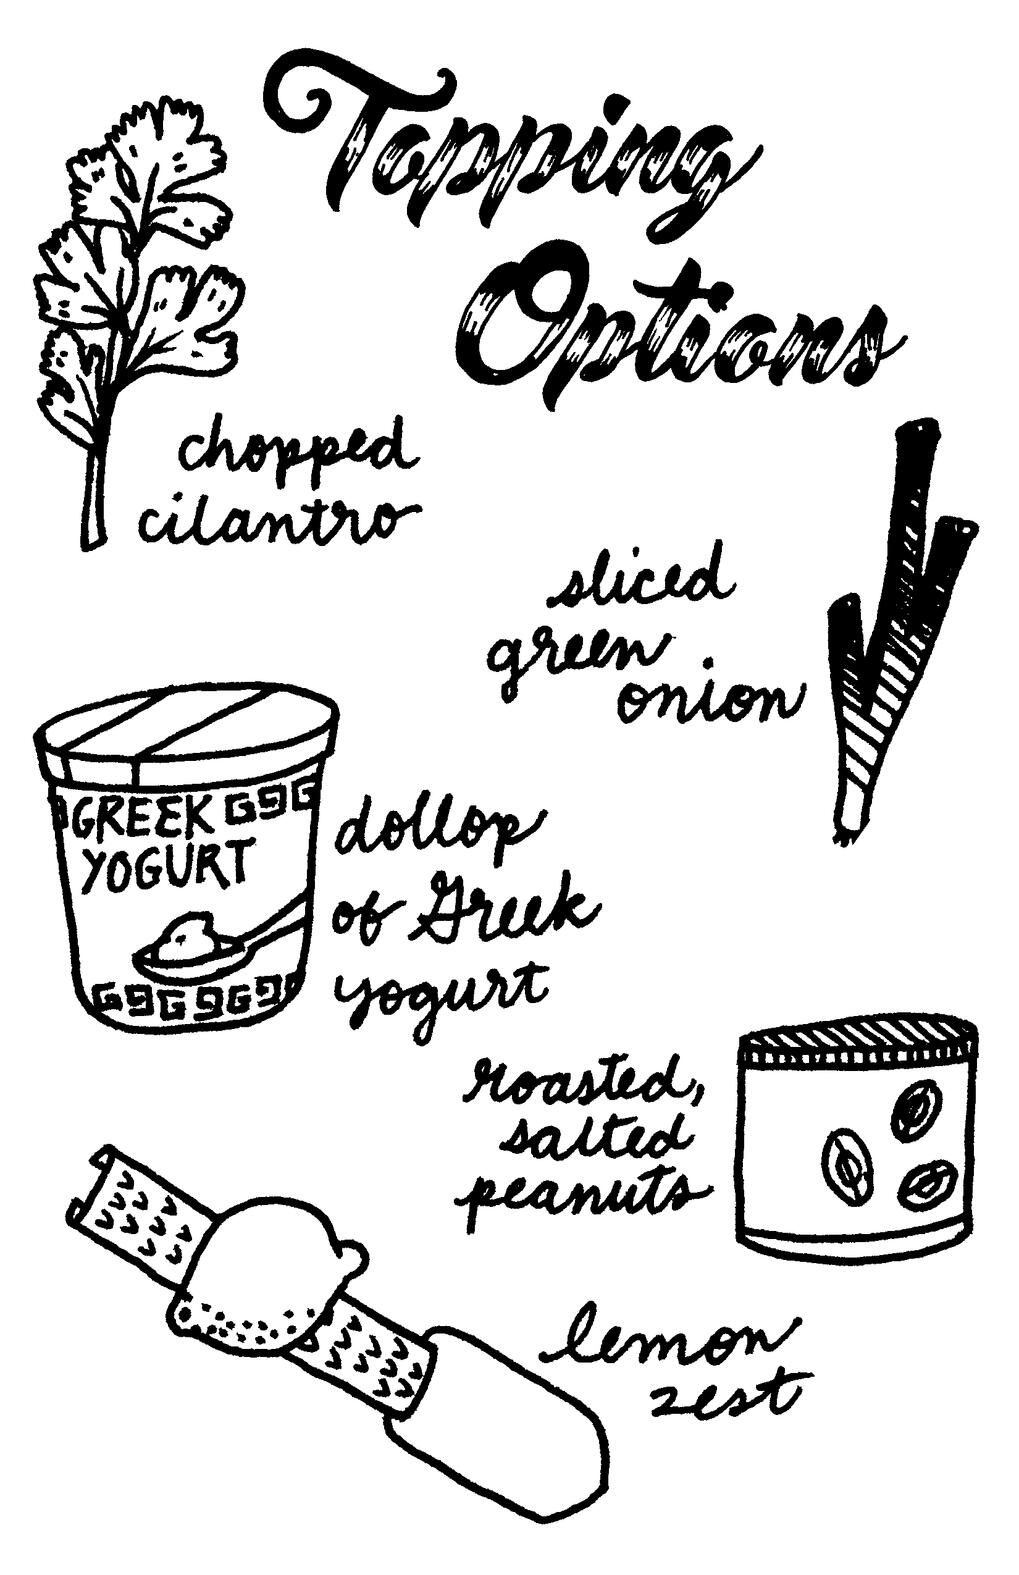 Topping
Options
chopped
cilantro
sliced
green
onion
GREEK
YOGURT
dollop
of Greek
yogurt
roasted,
salted
peanuts
lemon
zest